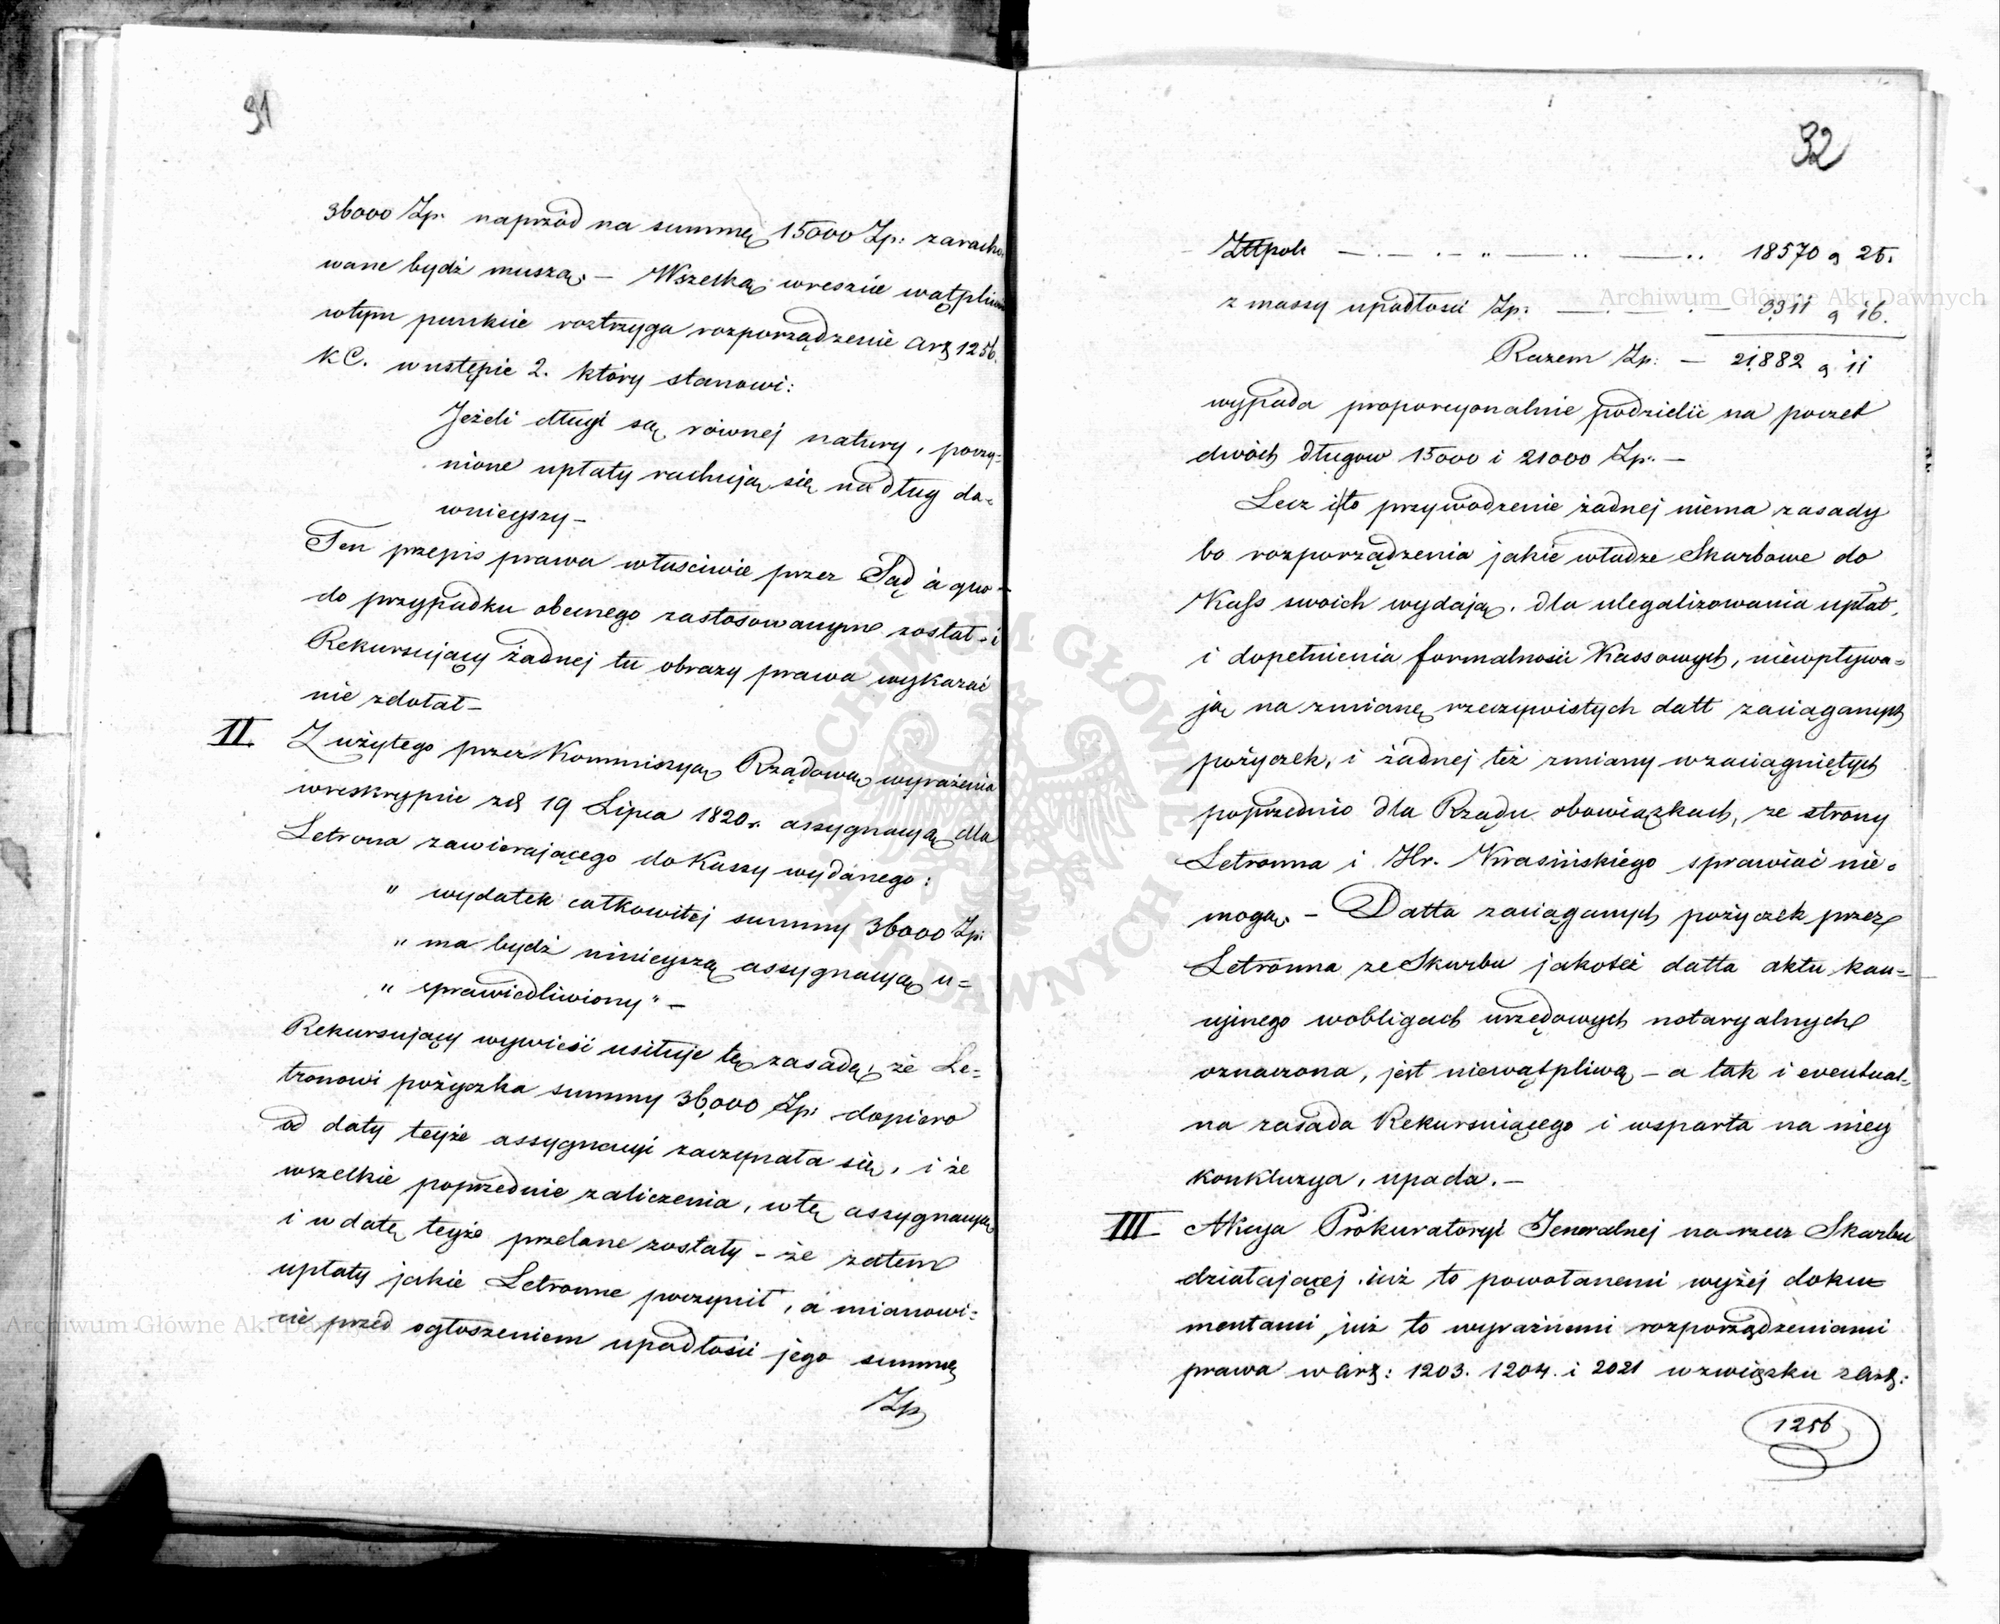 91
36000 Zp. naprzód na summę 15000 Zp: zaracho
wane bydź muszą. – Wszelką wreszcie wątpliwo
wtym punkcie roztrzyga rozporządzenie Art 1256.
KC. wustępie 2. który stanowi:
Jeżeli długi są równej natury, poczy=
nione upłaty rachują się na dług da=
wnieyszy –
Ten przepis prawa właściwie przez Sąd à quo –
do przypadku obecnego zastosowanym został i
Rekursujący żadnej tu obrazy prawa wykazać
nie zdołał –
II. Z użytego przez Kommissyą Rządową wyrażenia
wreskrypcie zd 19 Lipca 1820 r. assygnacyą dla
Letrona zawierającego do Kassy wydanego:
" wydatek całkowitej summy 36000 Zp:
" ma bydź ninieyszą assygnacyą u=
" sprawiedliwiony" –
Rekursujący wywieść usiłuje tę zasadę, że Le=
tronowi pożyczka summy 36,000 Zp: dopiero
od daty teyże assygnacyi zaczynała się, i że
wszelkie poprzednie zaliczenia, w tę assygnacyą
i w datę teyże przelane zostały – że zatem
upłaty jakie Letronne poczynił, a mianowi=
cie przed ogłoszeniem upadłości jego summę
Zp
32
Złłpol: — . — . — " — . . — . . 18570 g 25.
z massy upadłości Zp: — . — . — 3311 g 16.
Razem Zp: — 21882 g 11
wypada proporcyonalnie podzielić na poczet
dwóch długow 15000 i 21000 Zp. –
Lecz i to przywodzenie żadnej niema zasady
bo rozporządzenia jakie władze Skarbowe do
Kass swoich wydają, dla ulegalizowania upłat,
i dopełnienia formalności Kassowych, niewpływa=
ją na zmianę rzeczywistych datt zaciąganych
pożyczek, i żadnej też zmiany wzaciągniętych
poprzednio dla Rządu obowiązkach, ze strony
Letronna i Hr. Krasińskiego sprawiać nie=
mogą. – Datta zaciąganych pożyczek przez
Letronna ze Skarbu jakoteż datta aktu kau=
cyinego wobligach urzędowych notaryalnych
oznaczona, jest niewątpliwą – a tak i eventual=
na zasada Rekursuiącego i wsparta na niey
konkluzya, upada. –
III. Akcya Prokuratoryi Jeneralnej na rzecz Skarbu
działającej już to powołanemi wyżej doku=
mentami, już to wyraźnemi rozporządzeniami
prawa w Art: 1203. 1204. i 2021 wzwiązku z Art:
1256
Archiwum Główne Akt Dawnych
Archiwum Główne Akt Dawnych
ARCHIWUM GŁÓWNE AKT DAWNYCH